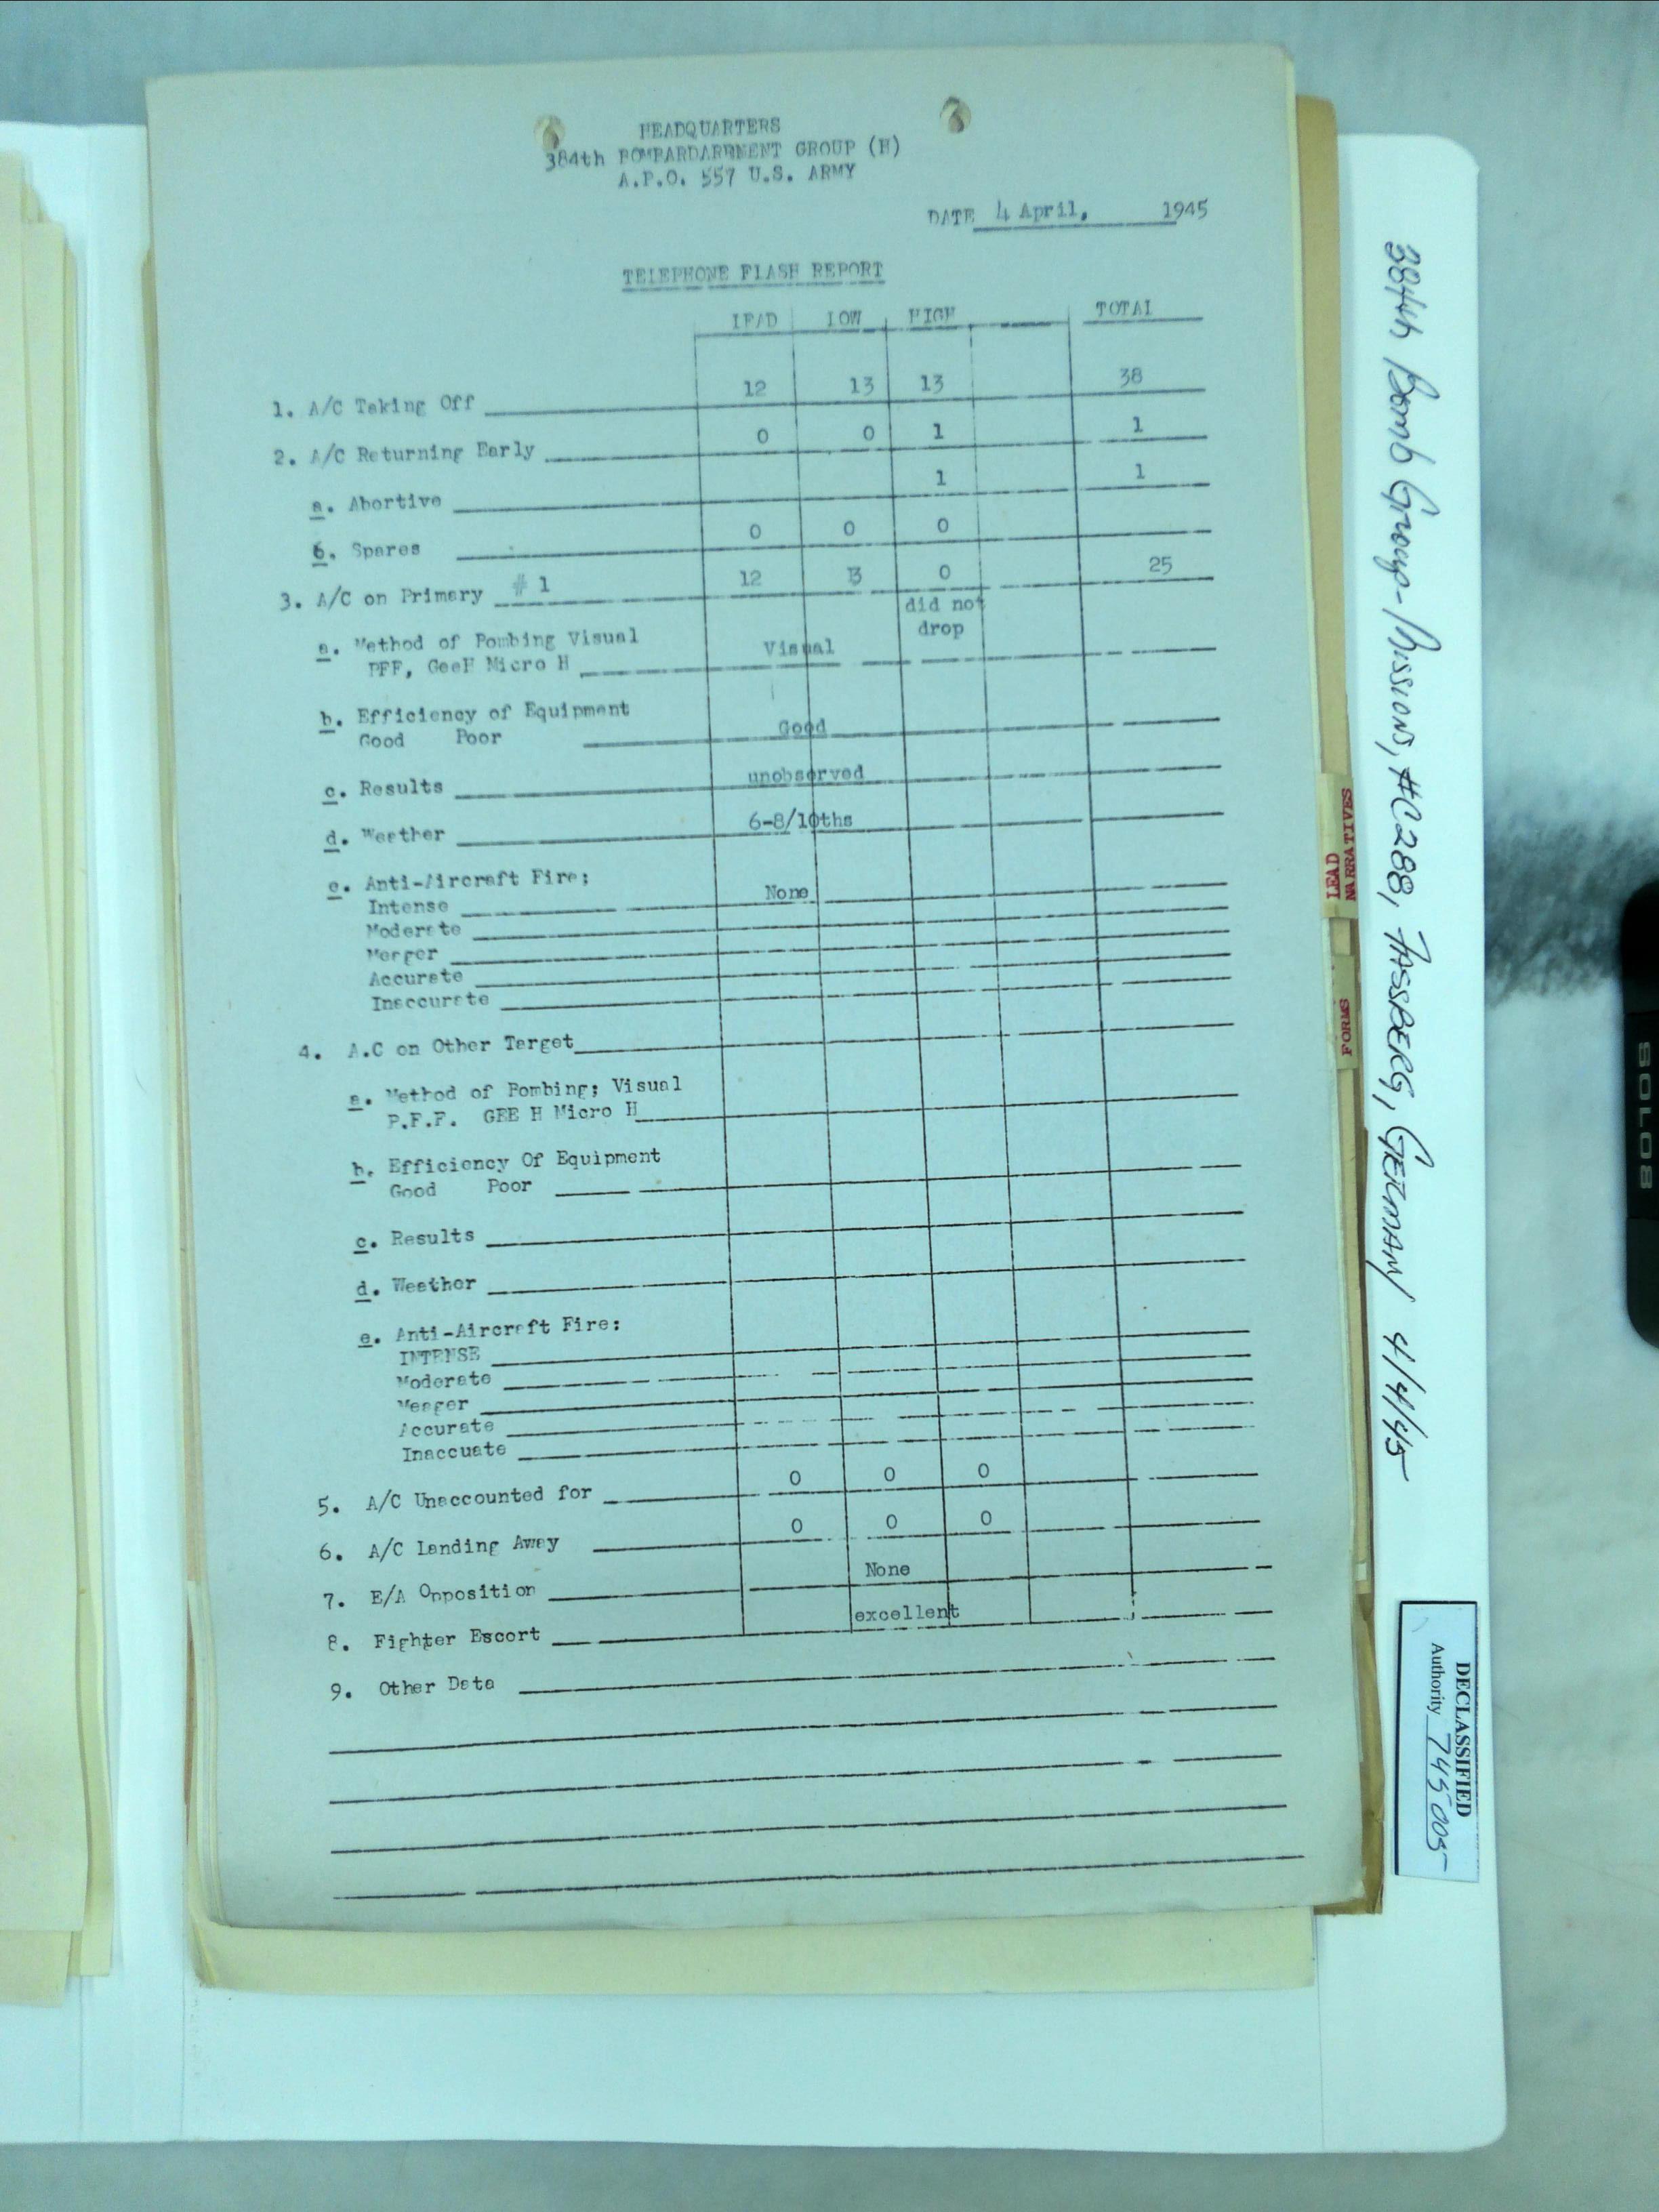 HEADQUARTERS
384th BOMBARDARBMENT GROUP (H)
A.P.O. 557 U.S. ARMY
DATE 4 April, 1945
TELEPHONE FLASH REPORT
LEAD LOW HIGH TOTAL
1. A/C Taking Off 12 13 13 38
2. A/C Returning Early 0 0 1 1
a. Abortive 1 1
b. Spares 0 0 0
3. A/C on Primary #1 12 13 0 25
did not
drop
a. Method of Bombing Visual Visual
PFF, GeeH Micro H
b. Efficiency of Equipment
Good Poor Good
c. Results unobserved
d. Weather 6-8/10ths
e. Anti-Aircraft Fire;
Intense None
Moderate
Merger
Accurate
Inaccurate
4. A.C on Other Target
a. Method of Bombing; Visual
P.F.F. GEE H Micro H
b. Efficiency Of Equipment
Good Poor
c. Results
d. Weather
e. Anti-Aircraft Fire:
INTENSE
Moderate
Meager
Accurate
Inaccuate
5. A/C Unaccounted for 0 0 0
6. A/C Landing Away 0 0 0
7. E/A Opposition None
8. Fighter Escort excellent
9. Other Data
LEAD
NARRATIVES
FORMS
384th Bomb Group-Missions, #C288, FASSBERG, GERMANY 4/4/45
DECLASSIFIED
Authority 745005